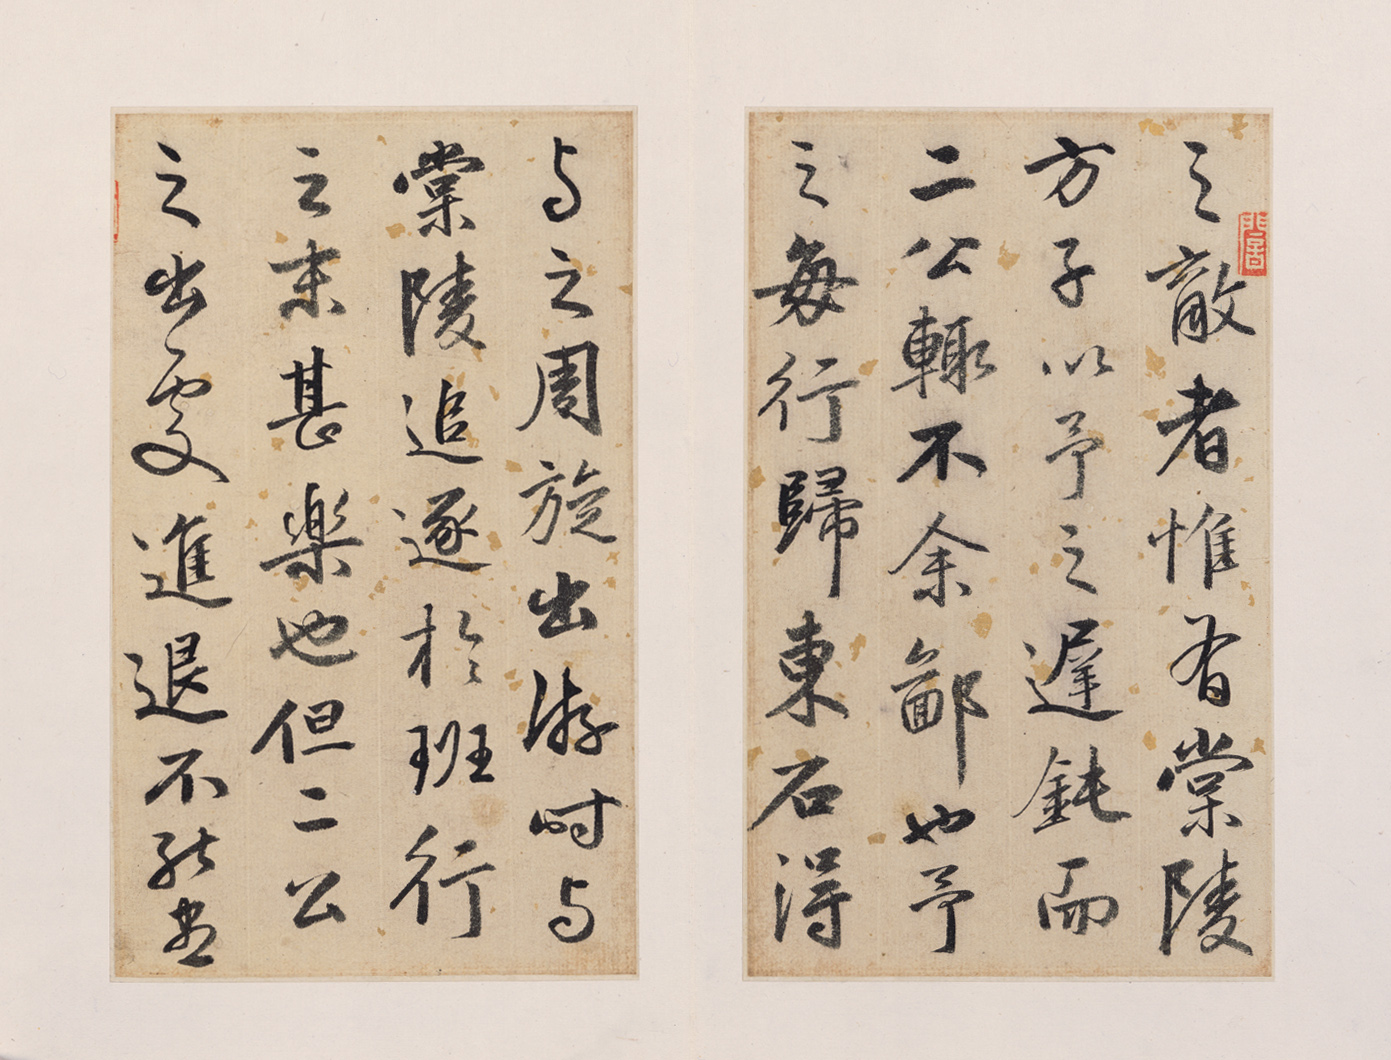 之敵者惟有棠陵
方子以予之遲鈍而
二公輒不余鄙也予
之每行歸東石得
与之周旋出游時与
棠陵追逐於班行
之末甚樂也但二公
之出處進退不能盡